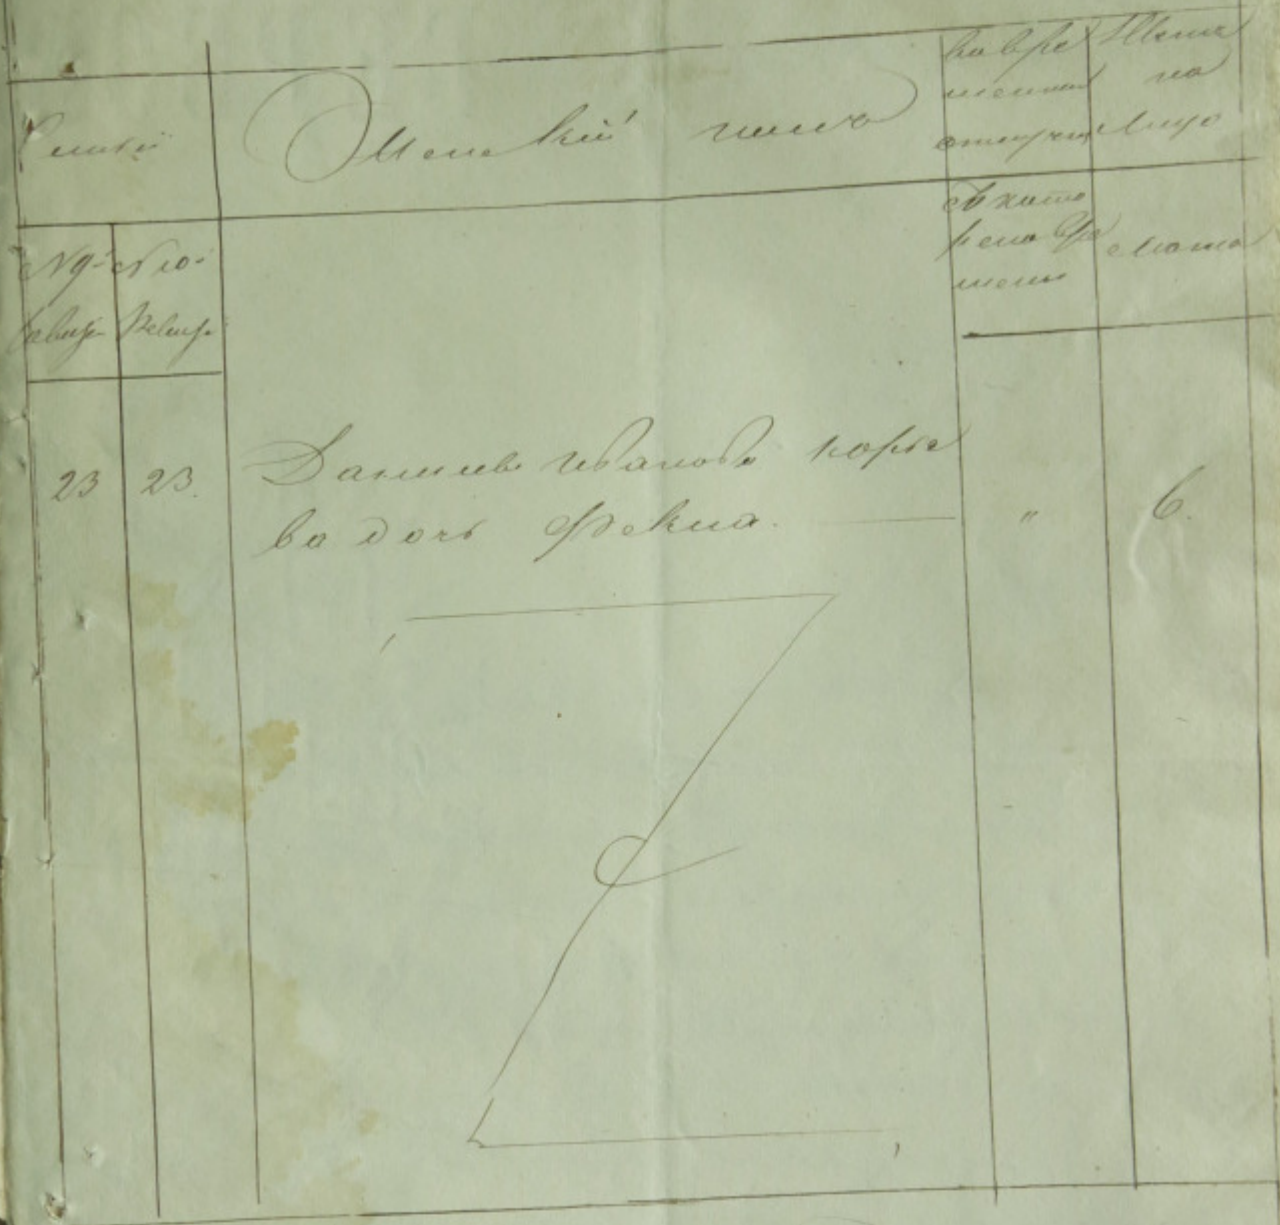 Семьи
Женскій полъ
во вре
менной
отлучке
Ныне
на
Лицо
№ 9й
ревизи
№ 10й
Ревизи
съ кото
раго вре
мени
Лета
23
23.
Данилы Иванова
ва дочь Фекла.
"
6.